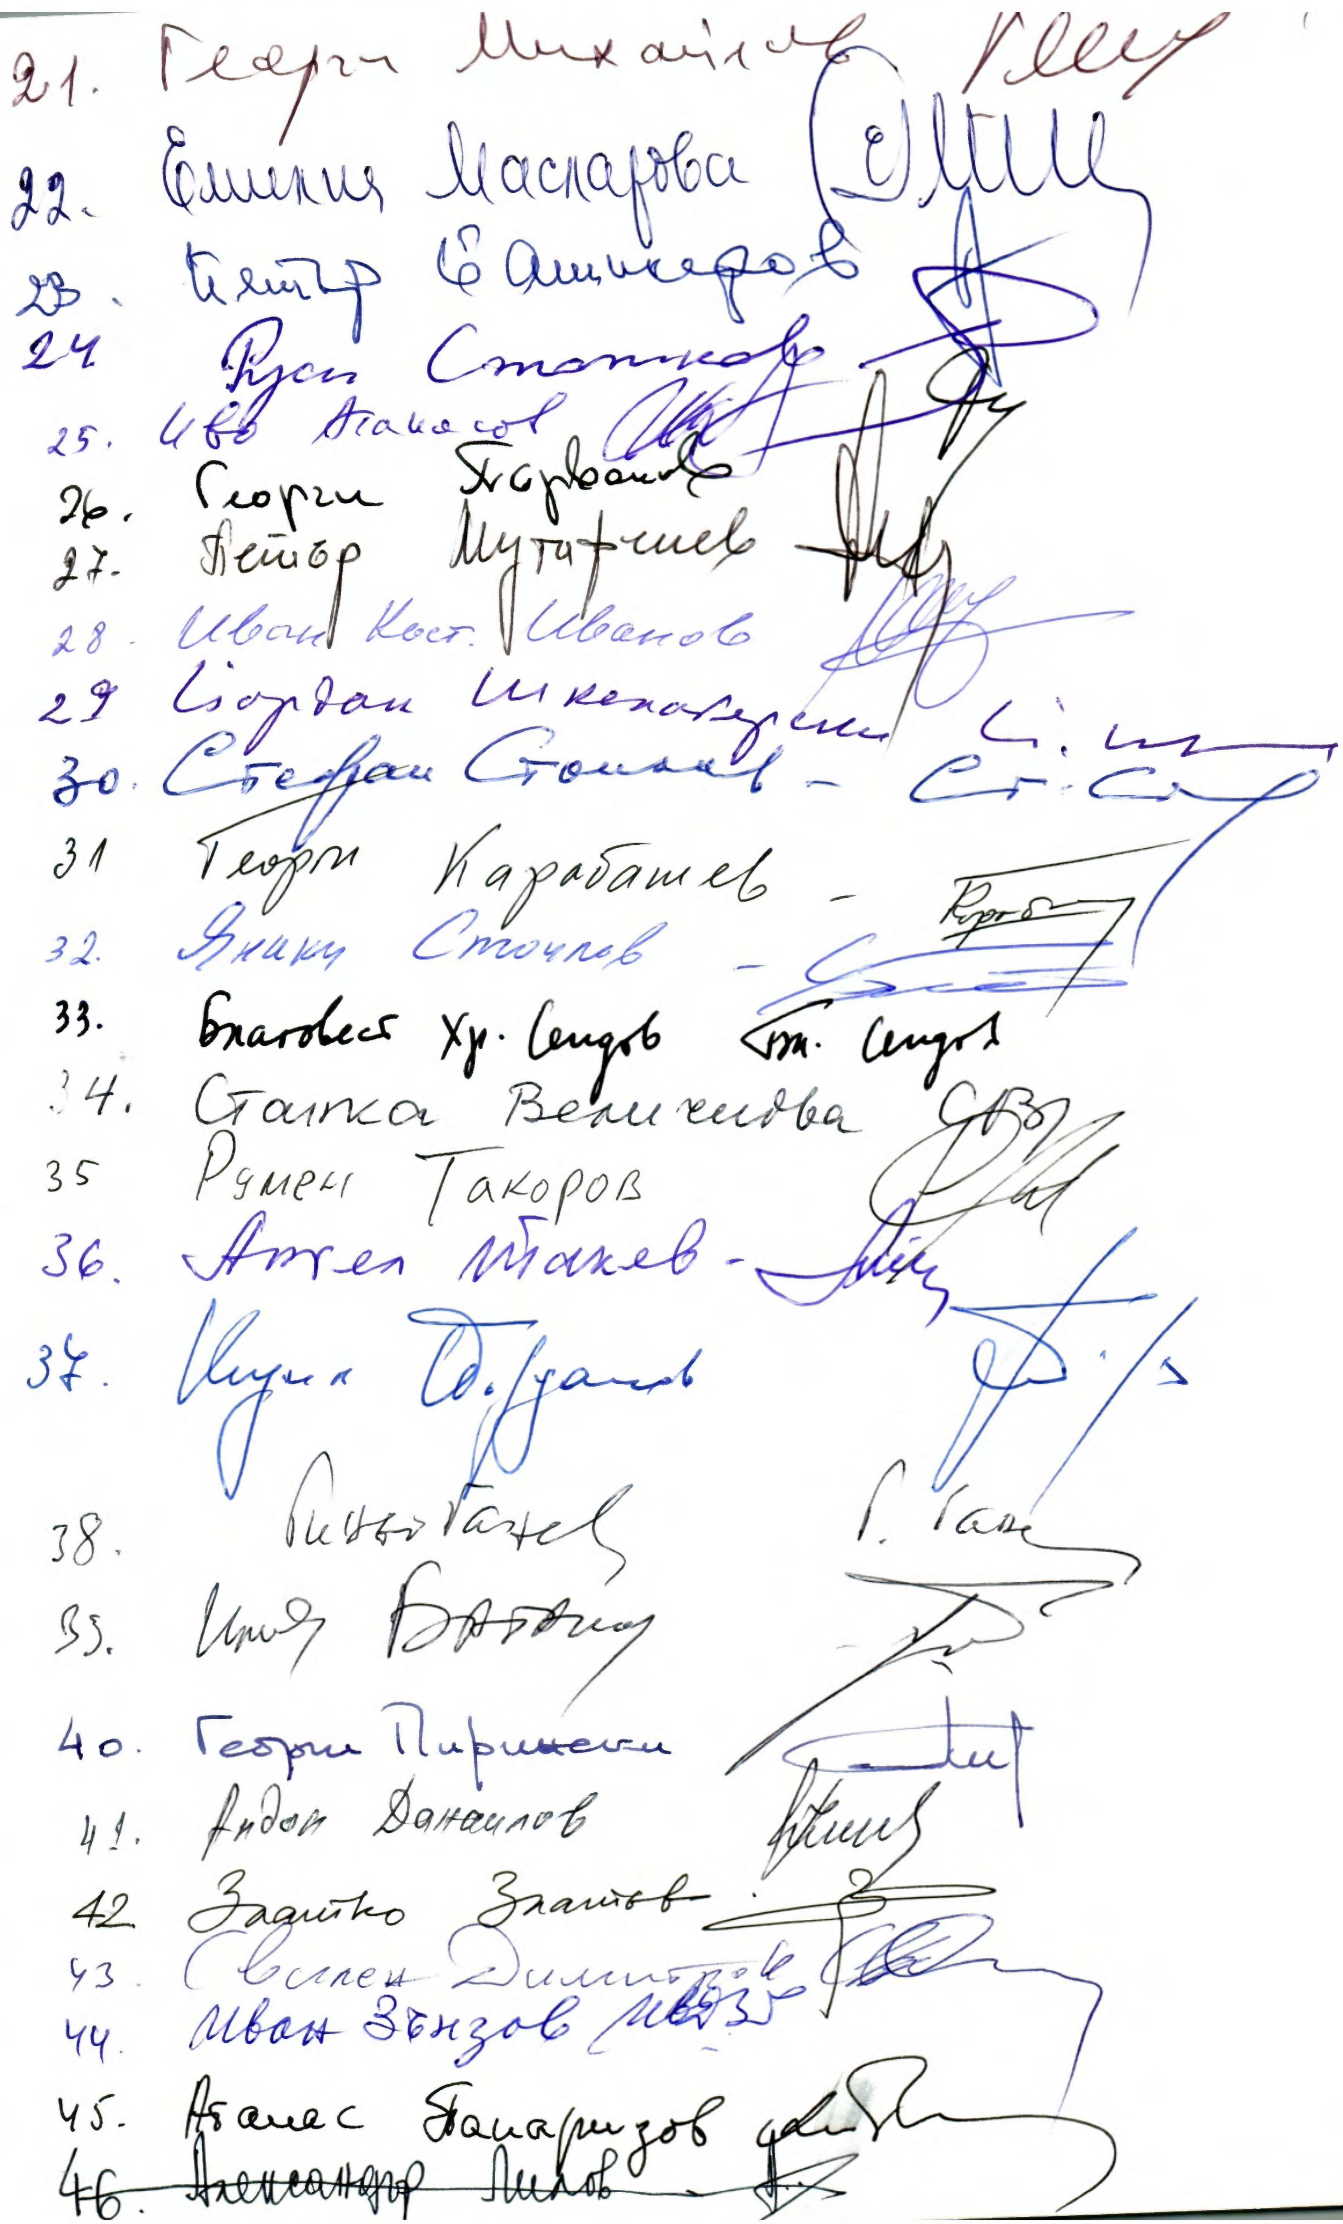 21. Георги Михайлов
22. Емилия Масларова
23. Петър Башикаров
24 Руси Статков
25. Иво Атанасов
26. Георги Първанов
27. Петър Мутафчиев
28. Иван Кост. Иванов
29 Йордан Школагерски Й. Ш
30. Стефан Стоилов - Ст. Ст
31 Георги Карабашев -
32. Янаки Стоилов -
33. Благовест Хр. Сендов Бл. Сендов
34. Станка Величкова
35 Румен Такоров
36. Ангел Такев -
37.
38. Гиньо Ганев Г. Ганев
39. Илия Баташки
40. Георги Пирински
41. Андон Данаилов
42 Златко Златев
43. Свилен Димитров
44. Иван Зънзов
45. Атанас Папаризов
46. Александър Лилов